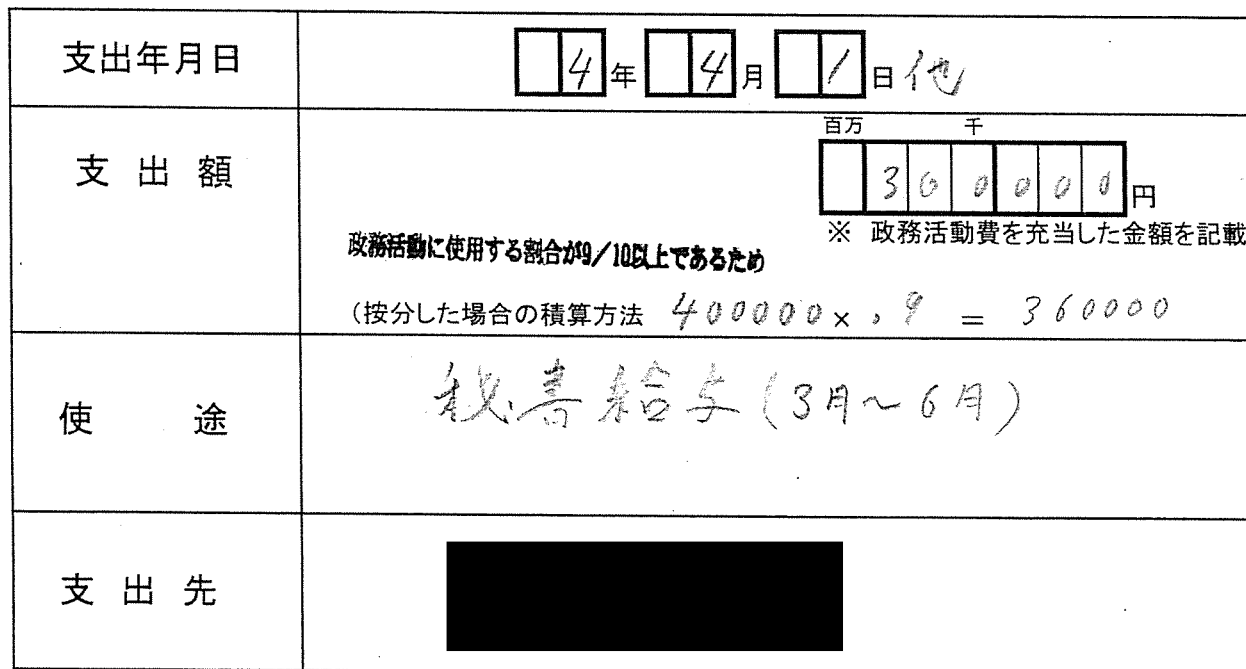 支出年月日
4年 4月 1日 他
支出額
百万 千
300000円
※ 政務活動費を充当した金額を記載
政務活動に使用する割合が9/10以上であるため
(按分した場合の積算方法 400000×.9 = 360000
使途
秘書給与(3月～6月)
支出先